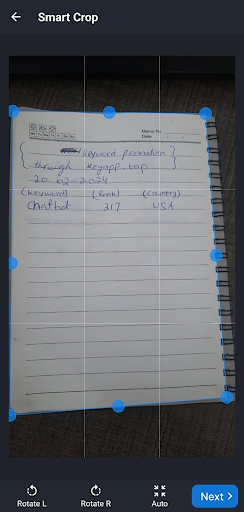 Smart Crop
Memo No.
Date
Mo Tu We Th Fr Sa Su
keyword promotion
through Keyapp.top
20-02-2024
(Keyword) (Rank) (Country)
Chatbot 217 USA
Rotate L Rotate R Auto Next